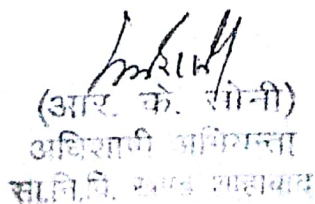 (आर. के. सोनी)
अधिशाषी अभियन्ता
सा.नि.वि. खण्ड शाहाबाद